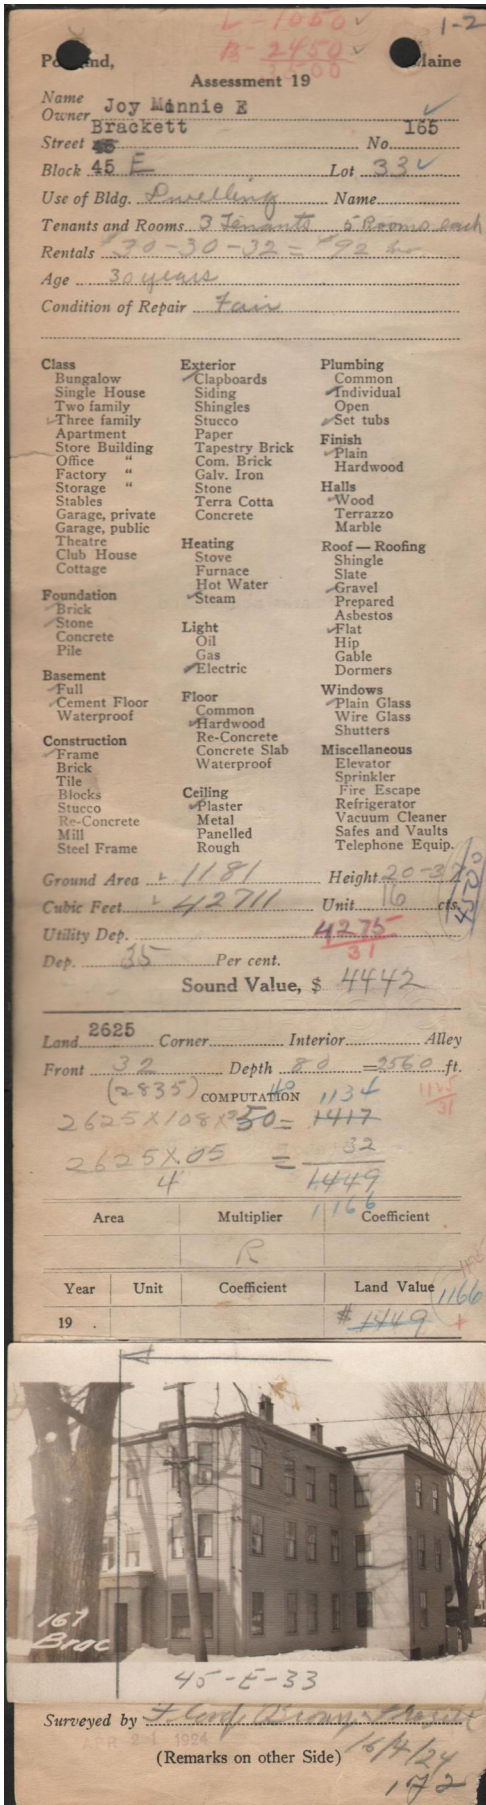 L-1050 1-2
B-2450
3500
Portland, Maine
Assessment 19
Name
Owner Joy Minnie E
Street Brackett No. 165
Block 45 E Lot 33
Use of Bldg. Dwelling Name
Tenants and Rooms 3 Tenants 5 Rooms each
Rentals $30-30-32 = $92
Age 30 years
Condition of Repair Fair
Class
Bungalow
Single House
Two family
Three family
Apartment
Store Building
Office "
Factory "
Storage "
Stables
Garage, private
Garage, public
Theatre
Club House
Cottage
Foundation
Brick
Stone
Concrete
Pile
Basement
Full
Cement Floor
Waterproof
Construction
Frame
Brick
Tile
Blocks
Stucco
Re-Concrete
Mill
Steel Frame
Exterior
Clapboards
Siding
Shingles
Stucco
Paper
Tapestry Brick
Com. Brick
Galv. Iron
Stone
Terra Cotta
Concrete
Heating
Stove
Furnace
Hot Water
Steam
Light
Oil
Gas
Electric
Floor
Common
Hardwood
Re-Concrete
Concrete Slab
Waterproof
Ceiling
Plaster
Metal
Panelled
Rough
Plumbing
Common
Individual
Open
Set tubs
Finish
Plain
Hardwood
Halls
Wood
Terrazzo
Marble
Roof — Roofing
Shingle
Slate
Gravel
Prepared
Asbestos
Flat
Hip
Gable
Dormers
Windows
Plain Glass
Wire Glass
Shutters
Miscellaneous
Elevator
Sprinkler
Fire Escape
Refrigerator
Vacuum Cleaner
Safes and Vaults
Telephone Equip.
Ground Area 1181 Height 20-32
Cubic Feet 42711 Unit 16 cts.
4500
Utility Dep. 4275
31
Dep. 35 Per cent.
Sound Value, $ 4442
Land 2625 Corner Interior Alley
Front 32 Depth 80 = 2560 ft.
(2835) COMPUTATION 40 1134
2625 X 108 X 50 = 1417
2625 X .05 = 32
4 1449
1166
Area Multiplier Coefficient
R
Year Unit Coefficient Land Value 1166
19 . $1449
167
Brac
45-E-33
Surveyed by
APR 21 1924
(Remarks on other Side) 16/4/24
172